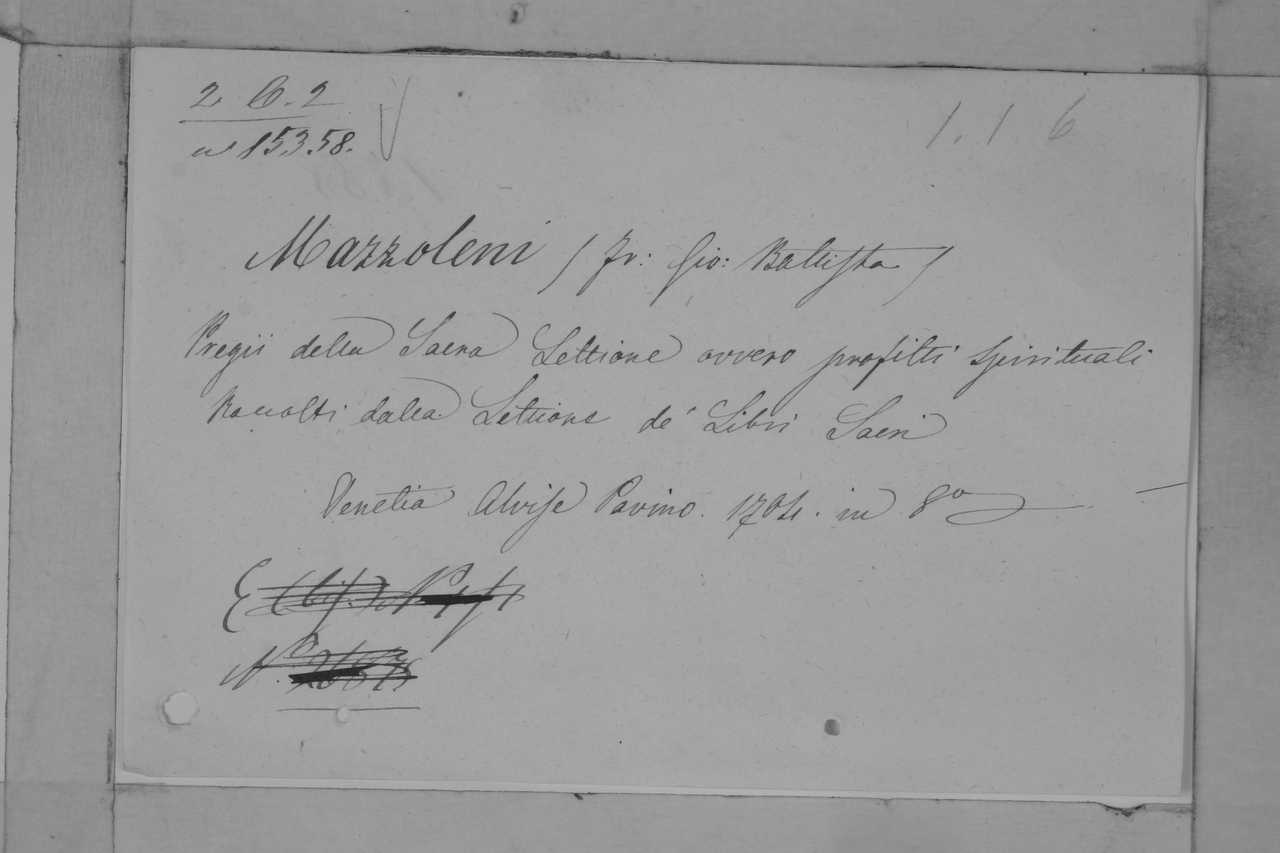 2. C. 2
n° 15358.
1. 1 6
Mazzoleni / Fr: Gio: Battista /
Pregii della Sacra Lettione ovvero profitti spirituali
Raccolti dalla Lettione de' Libri Sacri
Venetia Alvise Pavino. 1704. in 8°